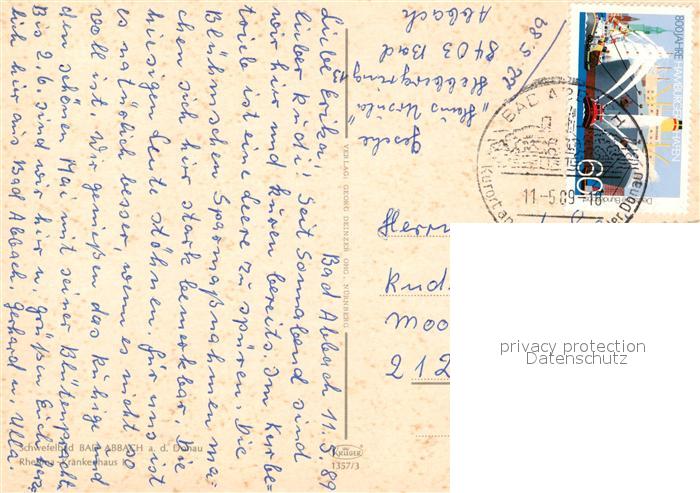 Bad Abbach 11.5.89
Liebe Erika,
lieber Rudi! Seit Sonnabend sind
wir hier und kuren bereits. Im Kurbe=
trieb ist eine Leere zu spüren. Die
Blühmschen Sparmaßnahmen ma=
chen sich hier stark bemerkbar. Die
hiesigen Leute stöhnen. Für uns ist
es natürlich besser, wenn es nicht so
voll ist. Wir genießen das kühige und
den schönen Mai mit seiner Blütenpracht.
Bis 2.6. sind wir hier u. grüßen Euch herz=
lich hier aus Bad Abbach, Gerhard u. Ulla.
Gesche
"Haus Ursula"
8403 Bad
Abbach
22.5.89
VERLAG: GEORG DEINZER OHG. NÜRNBERG
Herrn
Rud
Moo
212
800 JAHRE HAMBURGER HAFEN
60
BAD ABBACH
11-5.89-18
Kurort an der Donau
Schwefelbad BAD ABBACH a. d. Donau
Rheuma-Krankenhaus I
KRÜGER
1357/3
privacy protection
Datenschutz